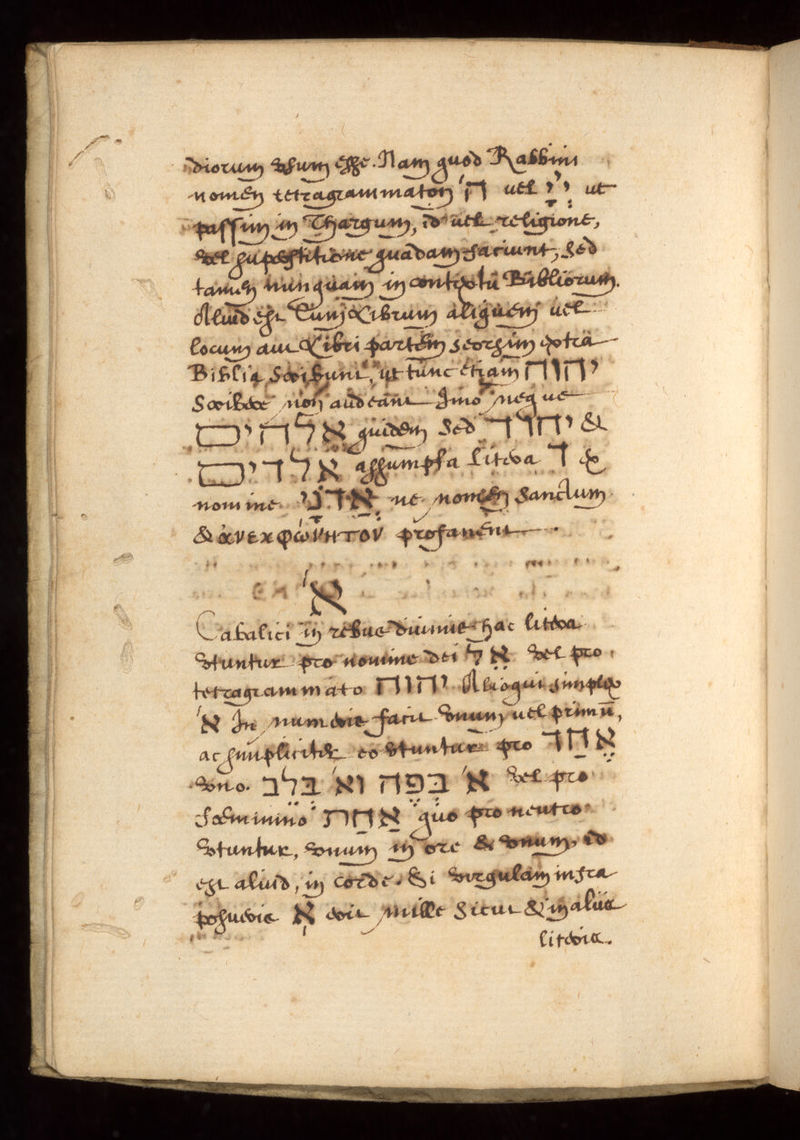 diorum usum esse. Nam quod Rabbini
nomen tetragrammaton ה' uel יְיָ ut
passim in Thargum, id uel religione,
vel superstitione quadam faciunt, sed
tamen nunquam in contextu Bibliorum.
Aliud est Cum Librum aliquem uel
locum aut Libri partem seorsim extra
Biblia Scribunt, ut tunc etiam יהוה
Scribere non audeant Imo neque
אלהים quidem sed יהוד &
אלדים assumpta litera ד &
nomine אֲדֹנָי ne nomen Sanctum
& ἀνεκφώνητον profanent.
א'
Cabalici in rebus diuinis hac litera
vtuntur pro nomine dei אל vel pro
tetragrammato יהוה Alioqui simplex
א' In numeris facit vnum uel primū,
ac simpliciter eo vtuntur pro אֶחָד
vno. א' בפה וא' בלב vel pro
foeminino אחת quo pro neutro
vtuntur, vnum in ore & vnum, id
est aliud, in corde. Si virgulam infra
posueris א erit mille Sicut & in aliis
literis.